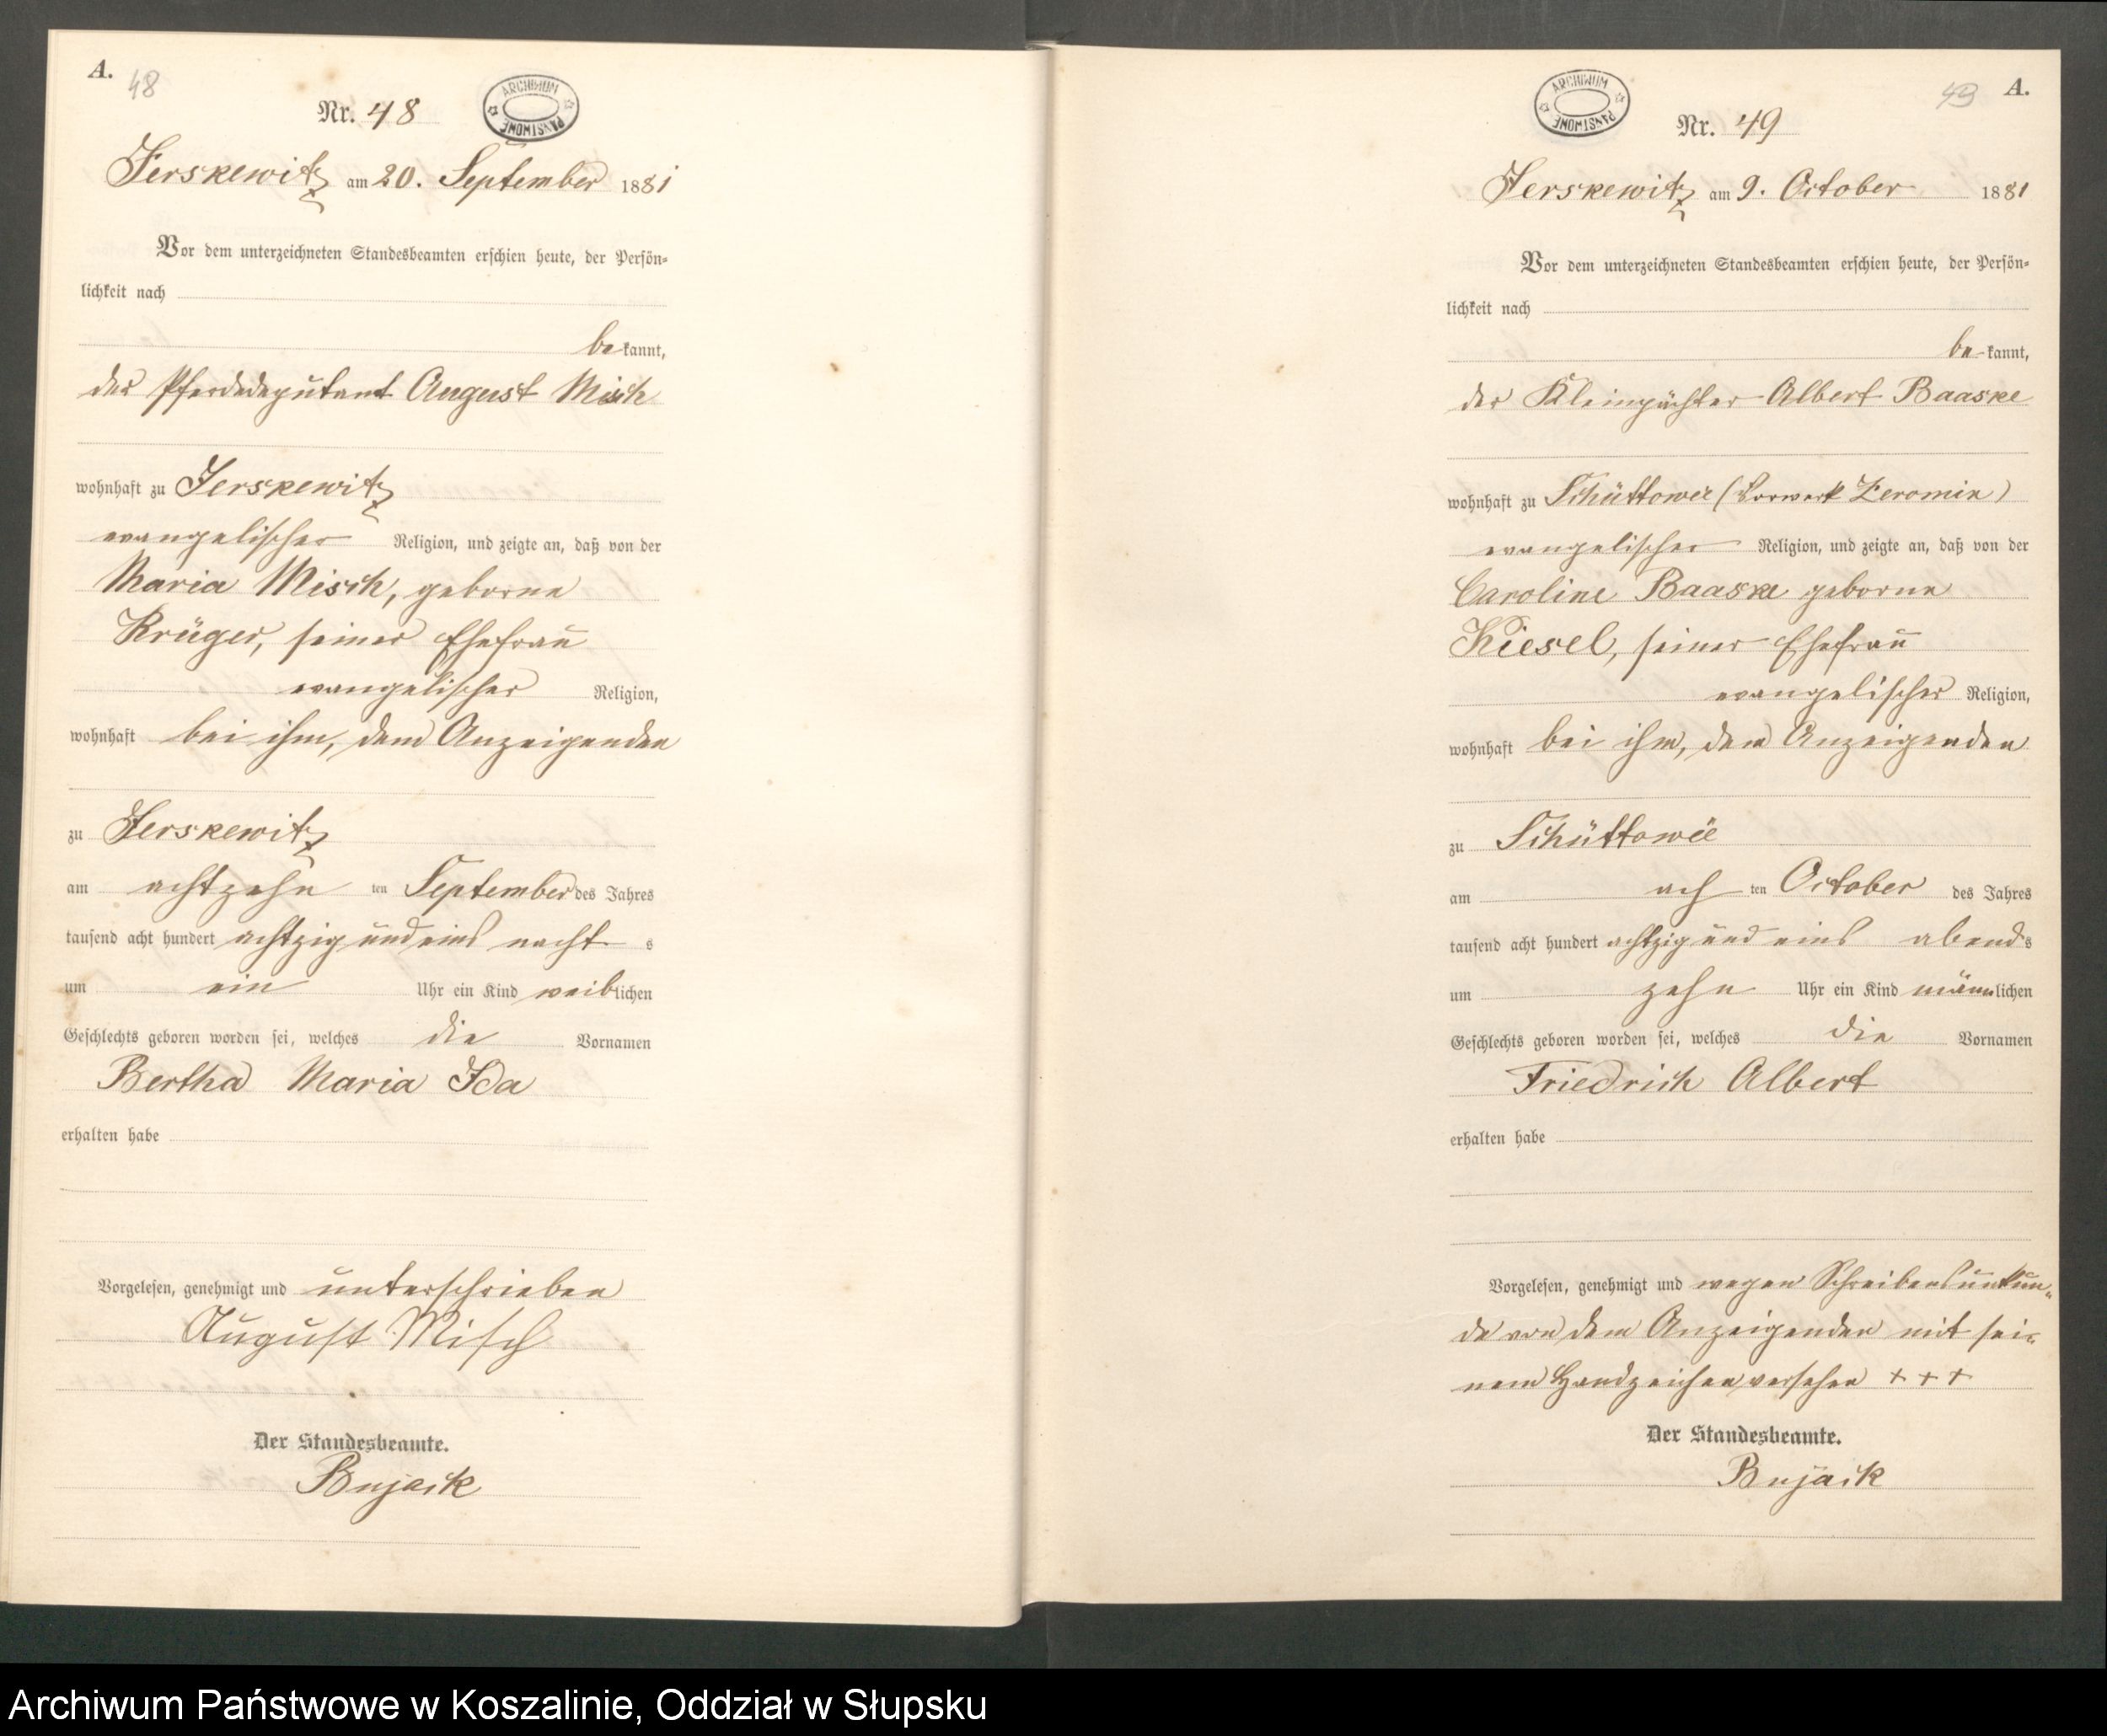 A.
48
Nr. 48
ARCHIWUM PAŃSTWOWE
Jerskewitz am 20. September 1881
Vor dem unterzeichneten Standesbeamten erschien heute, der Persön-
lichkeit nach
bekannt,
der Pferdedeputant August Misch
wohnhaft zu Jerskewitz
evangelischer Religion, und zeigte an, daß von der
Maria Misch, geborne
Krüger, seiner Ehefrau
evangelischer Religion,
wohnhaft bei ihm, dem Anzeigenden
zu Jerskewitz
am achtzehn ten September des Jahres
tausend acht hundert achtzig und eins nachts
um ein Uhr ein Kind weiblichen
Geschlechts geboren worden sei, welches die Vornamen
Bertha Maria Ida
erhalten habe
Vorgelesen, genehmigt und unterschrieben
August Misch
Der Standesbeamte.
Bujack
49 A.
ARCHIWUM PAŃSTWOWE
Nr. 49
Jerskewitz am 9. October 1881
Vor dem unterzeichneten Standesbeamten erschien heute, der Persön-
lichkeit nach
bekannt,
der Kleinpächter Albert Baaske
wohnhaft zu Schüttower (Vorwerk Zeromin)
evangelischer Religion, und zeigte an, daß von der
Caroline Baaske geborne
Kiesel, seiner Ehefrau
evangelischer Religion,
wohnhaft bei ihm, dem Anzeigenden
zu Schüttower
am ach ten October des Jahres
tausend acht hundert achtzig und eins abends
um zehn Uhr ein Kind männlichen
Geschlechts geboren worden sei, welches die Vornamen
Friedrich Albert
erhalten habe
Vorgelesen, genehmigt und wegen Schreibensunkun-
de von dem Anzeigenden mit sei-
nem Handzeichen versehen + + +
Der Standesbeamte.
Bujack
Archiwum Państwowe w Koszalinie, Oddział w Słupsku